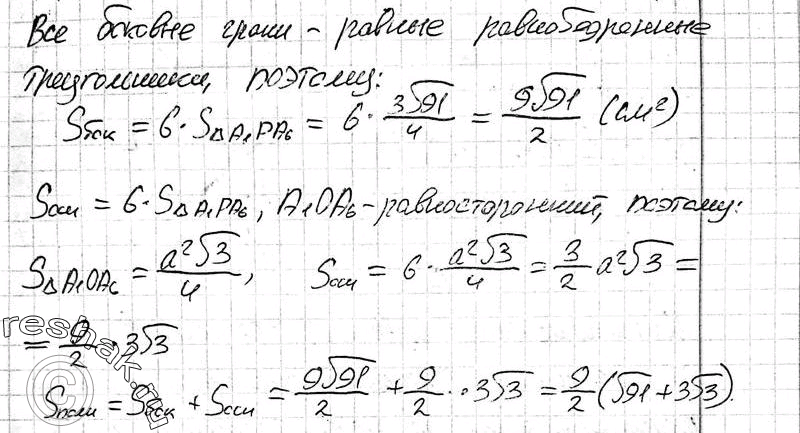 Все боковые грани - равные равнобедренные
треугольники, поэтому:
Sбок = 6 · S△A₁PA₆ = 6 · 3√91/4 = 9√91/2 (см²)
Sосн = 6 · S△A₁PA₆, A₁OA₆ - равносторонний, поэтому:
S△A₁OA₆ = a²√3/4, Sосн = 6 · a²√3/4 = 3/2 a²√3 =
= 9/2 · 3√3
Sполн = Sбок + Sосн = 9√91/2 + 9/2 · 3√3 = 9/2 (√91 + 3√3).
reshak.ru
©